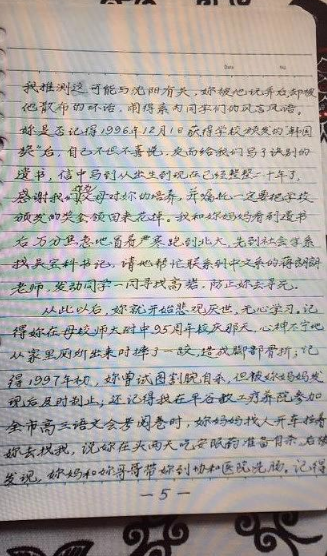 Date No.
我推测这可能与沈阳有关，妳被他玩弄后却被
他散布的坏话，闹得系内同学们的风言风语。
妳是否记得1996年12月1日获得学校颁发的"韩国
奖"后，自己不但不喜悦，反而给我们写了诀别的
遗书，信中写到从出生到现在已经整整二十年了，
感谢我们父母对妳的培养，并嘱托一定要把学校
颁发的奖金领回来花掉。我和妳妈妈看到遗书
后万分焦急地冒着严寒跑到北大，先到社会学系
找吴宝科书记，请他帮忙联系到中文系的蒋朗朗
老师，发动同学一同寻找高岩，防止妳去寻死。
从此以后，妳就开始悲观厌世，无心学习，记
得妳在母校师大附中95周年校庆那天，心神不宁地
从家里厕所出来时摔了一跤，造成脚部骨折；记
得1997年初，妳曾试图割腕自杀，但被妳妈妈发
现后及时制止；还记得我在平谷教工疗养院参加
全市高三语文会考阅卷时，妳妈妈找人开车拉着
妳去找我，说妳在头两天吃安眠药准备自杀，后被
发现，妳妈和妳哥哥带妳到协和医院洗肠。记得
— 5 —